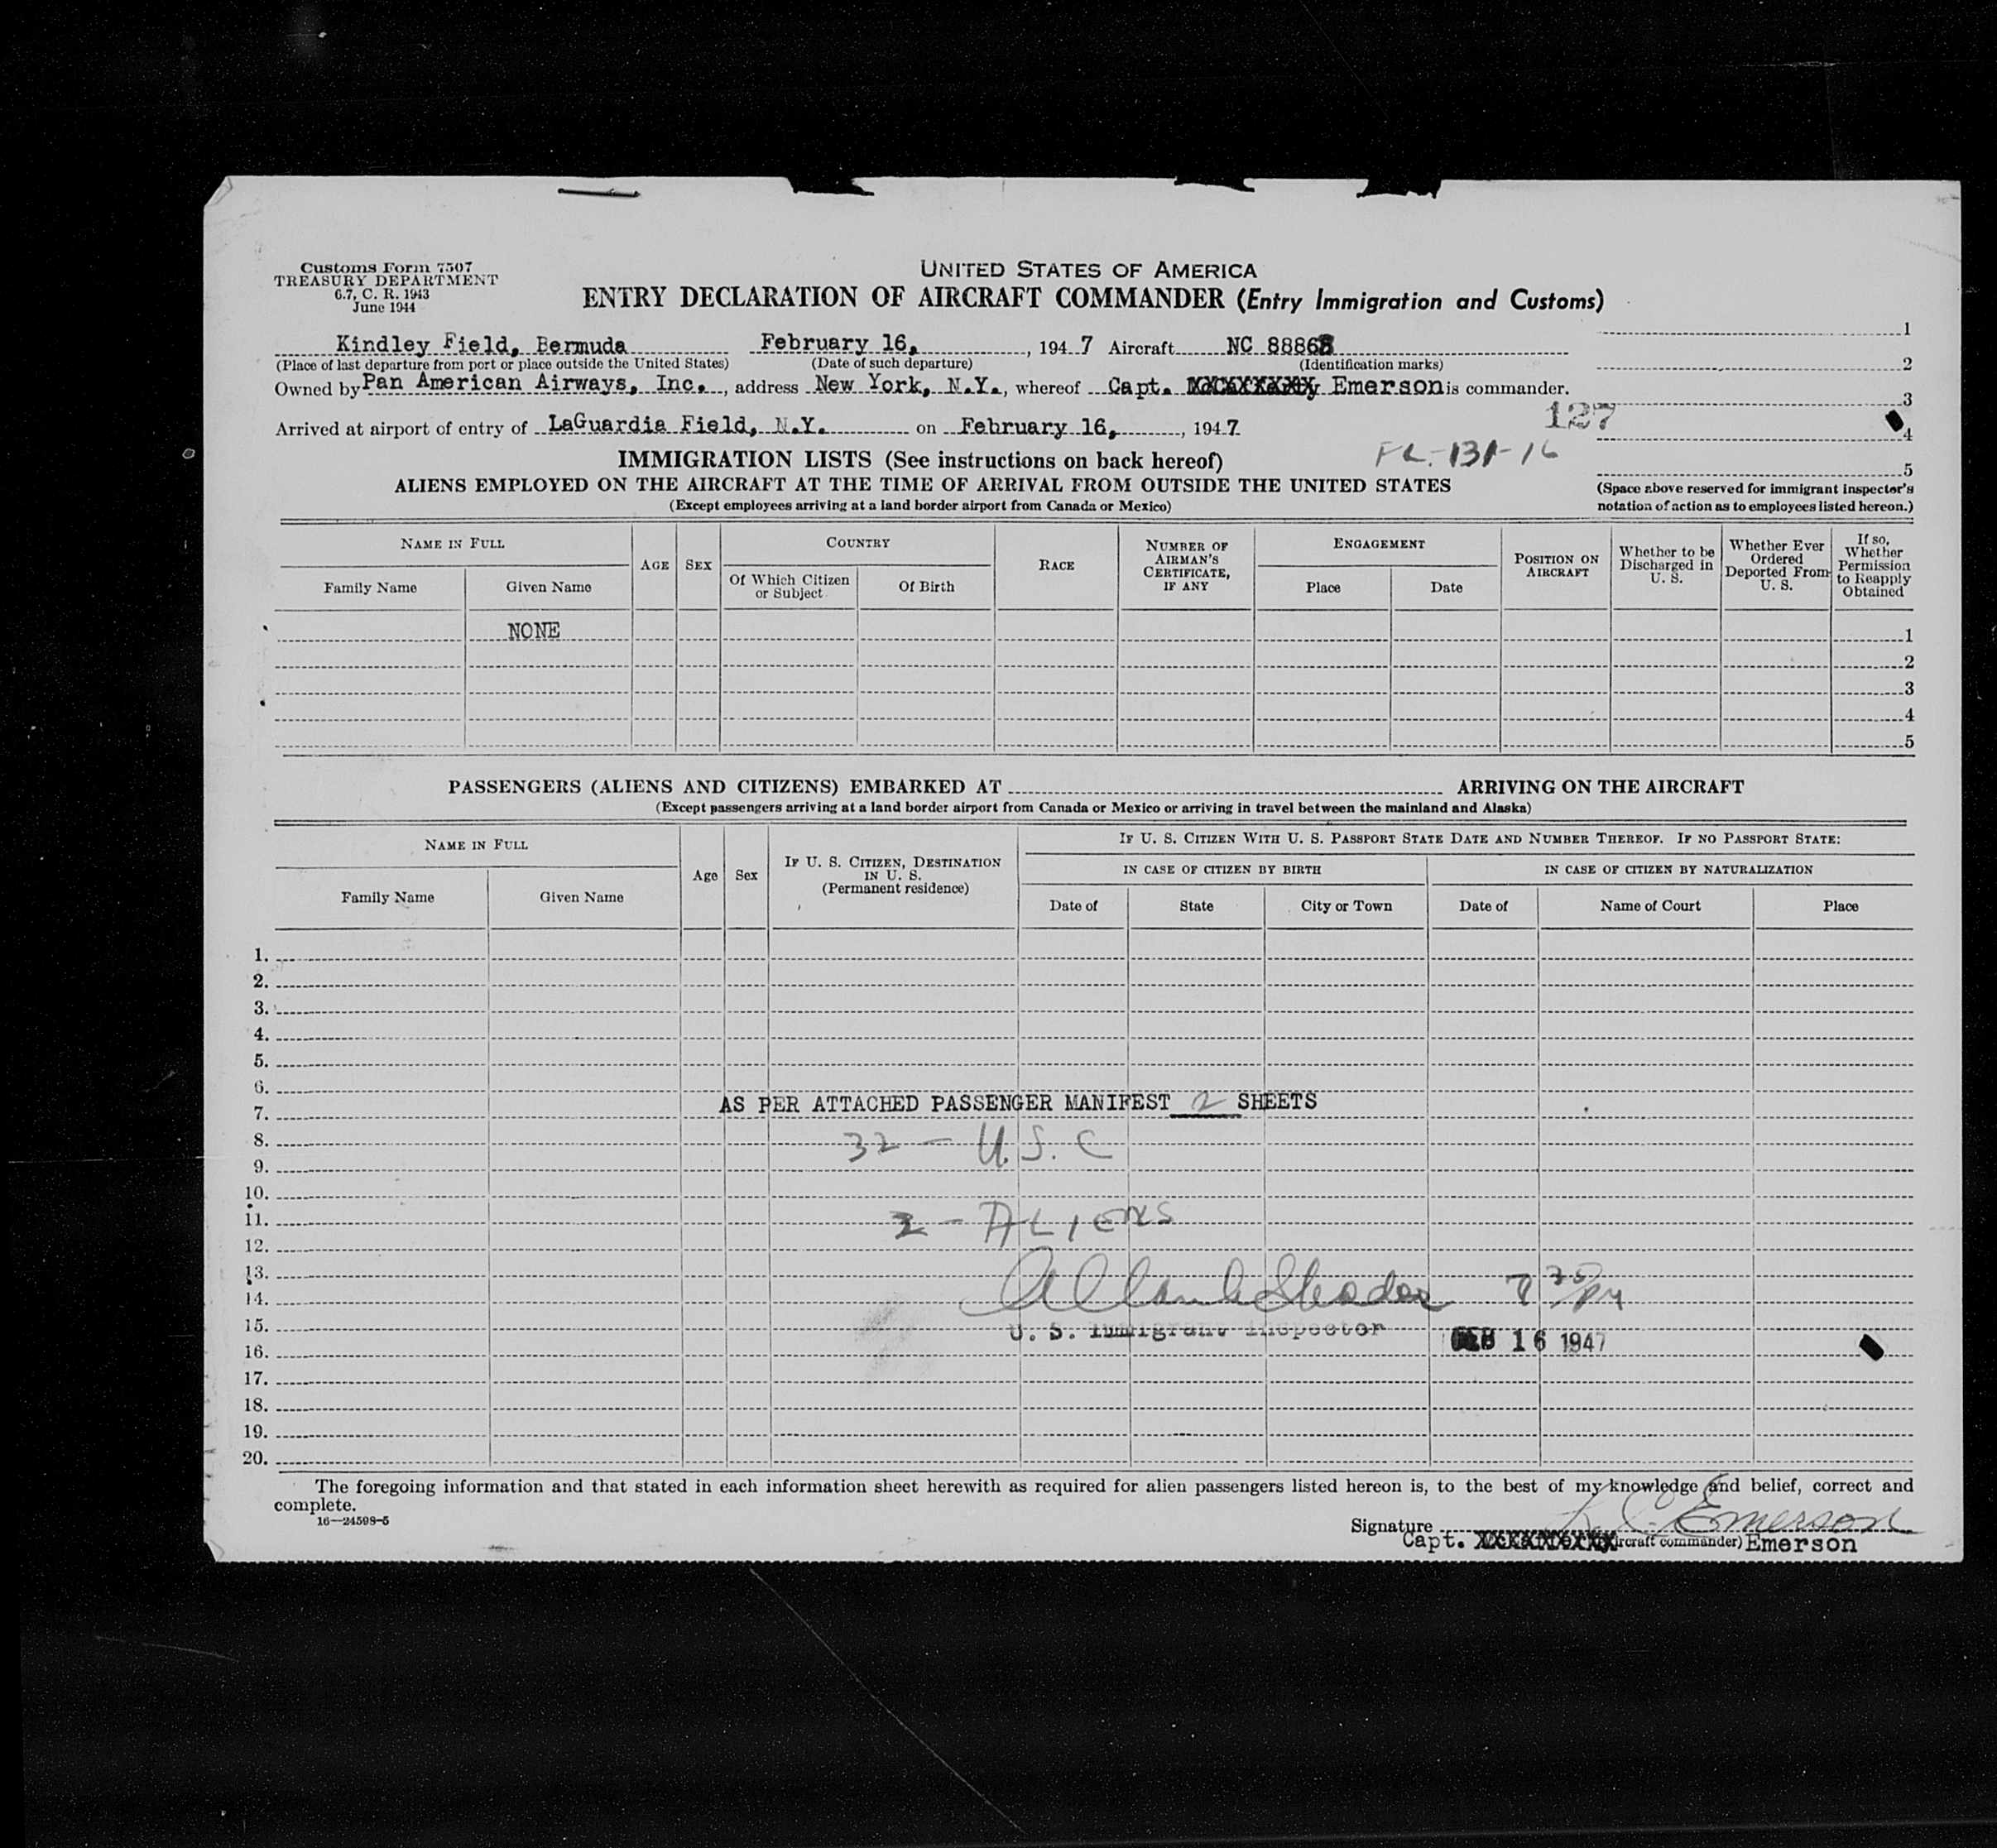 Customs Form 7507
TREASURY DEPARTMENT
6.7, C. R. 1943
June 1944
UNITED STATES OF AMERICA
ENTRY DECLARATION OF AIRCRAFT COMMANDER (Entry Immigration and Customs)
Kindley Field, Bermuda February 16, , 194 7 Aircraft NC 8886 1
(Place of last departure from port or place outside the United States) (Date of such departure) (Identification marks) 2
Owned by Pan American Airways, Inc. , address New York, N.Y. , whereof Capt. Emerson is commander. 3
127
Arrived at airport of entry of LaGuardia Field, N.Y. on February 16, , 194 7 4
FL-131-16
IMMIGRATION LISTS (See instructions on back hereof) 5
ALIENS EMPLOYED ON THE AIRCRAFT AT THE TIME OF ARRIVAL FROM OUTSIDE THE UNITED STATES
(Except employees arriving at a land border airport from Canada or Mexico)
(Space above reserved for immigrant inspector's
notation of action as to employees listed hereon.)
NAME IN FULL
Family Name Given Name
AGE SEX
COUNTRY
Of Which Citizen
or Subject
Of Birth
RACE
NUMBER OF
AIRMAN'S
CERTIFICATE,
IF ANY
ENGAGEMENT
Place Date
POSITION ON
AIRCRAFT
Whether to be
Discharged in
U. S.
Whether Ever
Ordered
Deported From
U. S.
If so,
Whether
Permission
to Reapply
Obtained
NONE 1
2
3
4
5
PASSENGERS (ALIENS AND CITIZENS) EMBARKED AT ARRIVING ON THE AIRCRAFT
(Except passengers arriving at a land border airport from Canada or Mexico or arriving in travel between the mainland and Alaska)
NAME IN FULL
Family Name Given Name
Age Sex
IF U. S. CITIZEN, DESTINATION
IN U. S.
(Permanent residence)
IF U. S. CITIZEN WITH U. S. PASSPORT STATE DATE AND NUMBER THEREOF. IF NO PASSPORT STATE:
IN CASE OF CITIZEN BY BIRTH IN CASE OF CITIZEN BY NATURALIZATION
Date of State City or Town Date of Name of Court Place
1.
2.
3.
4.
5.
6.
AS PER ATTACHED PASSENGER MANIFEST 2 SHEETS
7.
8. 32 - U.S.C
9.
10.
11. 2 - ALIENS
12.
13.
14.
15. U. S. Immigrant Inspector
16. FEB 16 1947
17.
18.
19.
20.
The foregoing information and that stated in each information sheet herewith as required for alien passengers listed hereon is, to the best of my knowledge and belief, correct and
complete.
16—24598-5
Signature Emerson
Capt. aircraft commander) Emerson